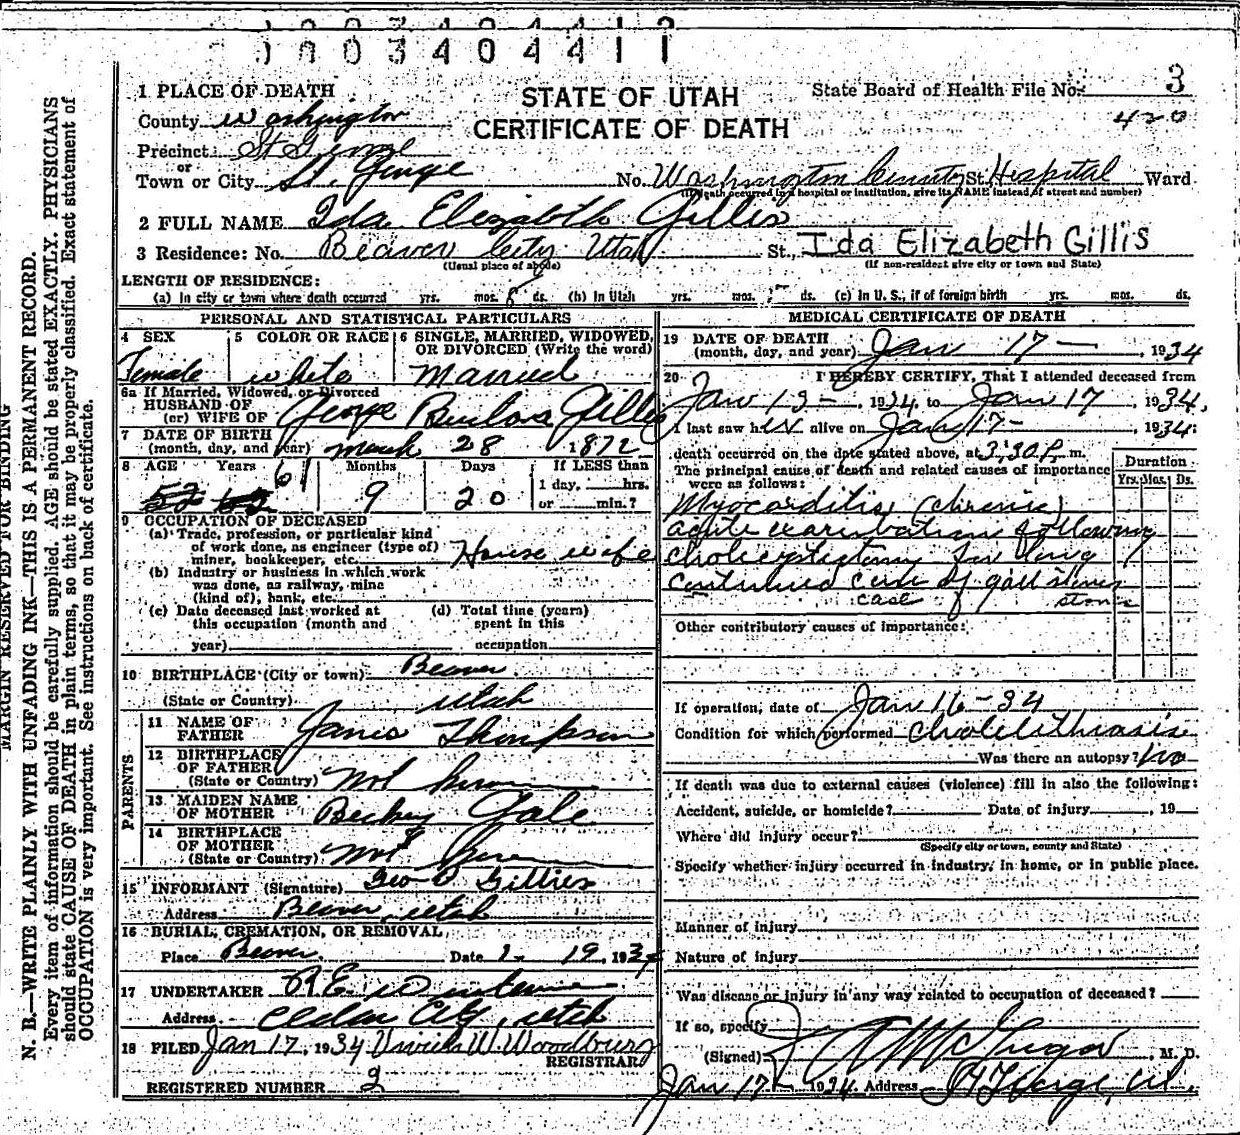 0003404411
1 PLACE OF DEATH
STATE OF UTAH
CERTIFICATE OF DEATH
State Board of Health File No. 3
420
County Washington
Precinct St George
or
Town or City St. George No. Washington County St. Hospital Ward
(If death occurred in a hospital or institution, give its NAME instead of street and number)
2 FULL NAME Ida Elizabeth Gillis
3 Residence: No. Beaver City Utah St., Ida Elizabeth Gillis
(Usual place of abode) (If non-resident give city or town and State)
LENGTH OF RESIDENCE:
(a) In city or town where death occurred yrs. mos. ds. (b) In Utah yrs. mos. ds. (c) In U. S., if of foreign birth yrs. mos. ds.
PERSONAL AND STATISTICAL PARTICULARS
4 SEX 5 COLOR OR RACE 6 SINGLE, MARRIED, WIDOWED, OR DIVORCED (Write the word)
Female white Married
6a If Married, Widowed, or Divorced
HUSBAND OF
(or) WIFE OF George Gillis
7 DATE OF BIRTH
(month, day, and year) March 28 1872
8 AGE Years Months Days If LESS than
61 9 20 1 day, hrs.
or min.?
9 OCCUPATION OF DECEASED
(a) Trade, profession, or particular kind
of work done, as engineer (type of)
miner, bookkeeper, etc. House wife
(b) Industry or business in which work
was done, as railway, mine
(kind of), bank, etc.
(c) Date deceased last worked at (d) Total time (years)
this occupation (month and spent in this
year) occupation
10 BIRTHPLACE (City or town) Beaver
(State or Country) Utah
PARENTS
11 NAME OF
FATHER James Thompson
12 BIRTHPLACE
OF FATHER
(State or Country) Not known
13 MAIDEN NAME
OF MOTHER Beckey Gale
14 BIRTHPLACE
OF MOTHER
(State or Country) Not
15 INFORMANT (Signature) Geo B Gillies
Address Beaver, Utah
16 BURIAL, CREMATION, OR REMOVAL
Place Beaver Date 1- 19, 1934
17 UNDERTAKER
Address Cedar City, Utah
18 FILED Jan 17, 1934 W. Woodbury
REGISTRAR
REGISTERED NUMBER 2
MEDICAL CERTIFICATE OF DEATH
19 DATE OF DEATH
(month, day, and year) Jan 17 — , 1934
20 I HEREBY CERTIFY, That I attended deceased from
Jan 13 - 1934, to Jan 17, 1934,
I last saw her alive on Jan 17 - , 1934:
death occurred on the date stated above, at 3:30 P. m.
The principal cause of death and related causes of importance
were as follows:
Duration
Yrs. Mos. Ds.
Myocarditis (chronic)
acute exacerbation following
cholecystectomy for long
continued case of gall stones
case of stones
Other contributory causes of importance:
If operation, date of Jan 16 - 34
Condition for which performed cholelithiasis
Was there an autopsy? No
If death was due to external causes (violence) fill in also the following:
Accident, suicide, or homicide? Date of injury , 19
Where did injury occur?
(Specify city or town, county and State)
Specify whether injury occurred in industry, in home, or in public place.
Manner of injury
Nature of injury
Was disease or injury in any way related to occupation of deceased?
If so, specify
(Signed) McGregor, M. D.
Jan 17 - 1934. Address St George, Ut.
MARGIN RESERVED FOR BINDING
N. B.—WRITE PLAINLY WITH UNFADING INK—THIS IS A PERMANENT RECORD.
Every item of information should be carefully supplied. AGE should be stated EXACTLY. PHYSICIANS
should state CAUSE OF DEATH in plain terms, so that it may be properly classified. Exact statement of
OCCUPATION is very important. See instructions on back of certificate.